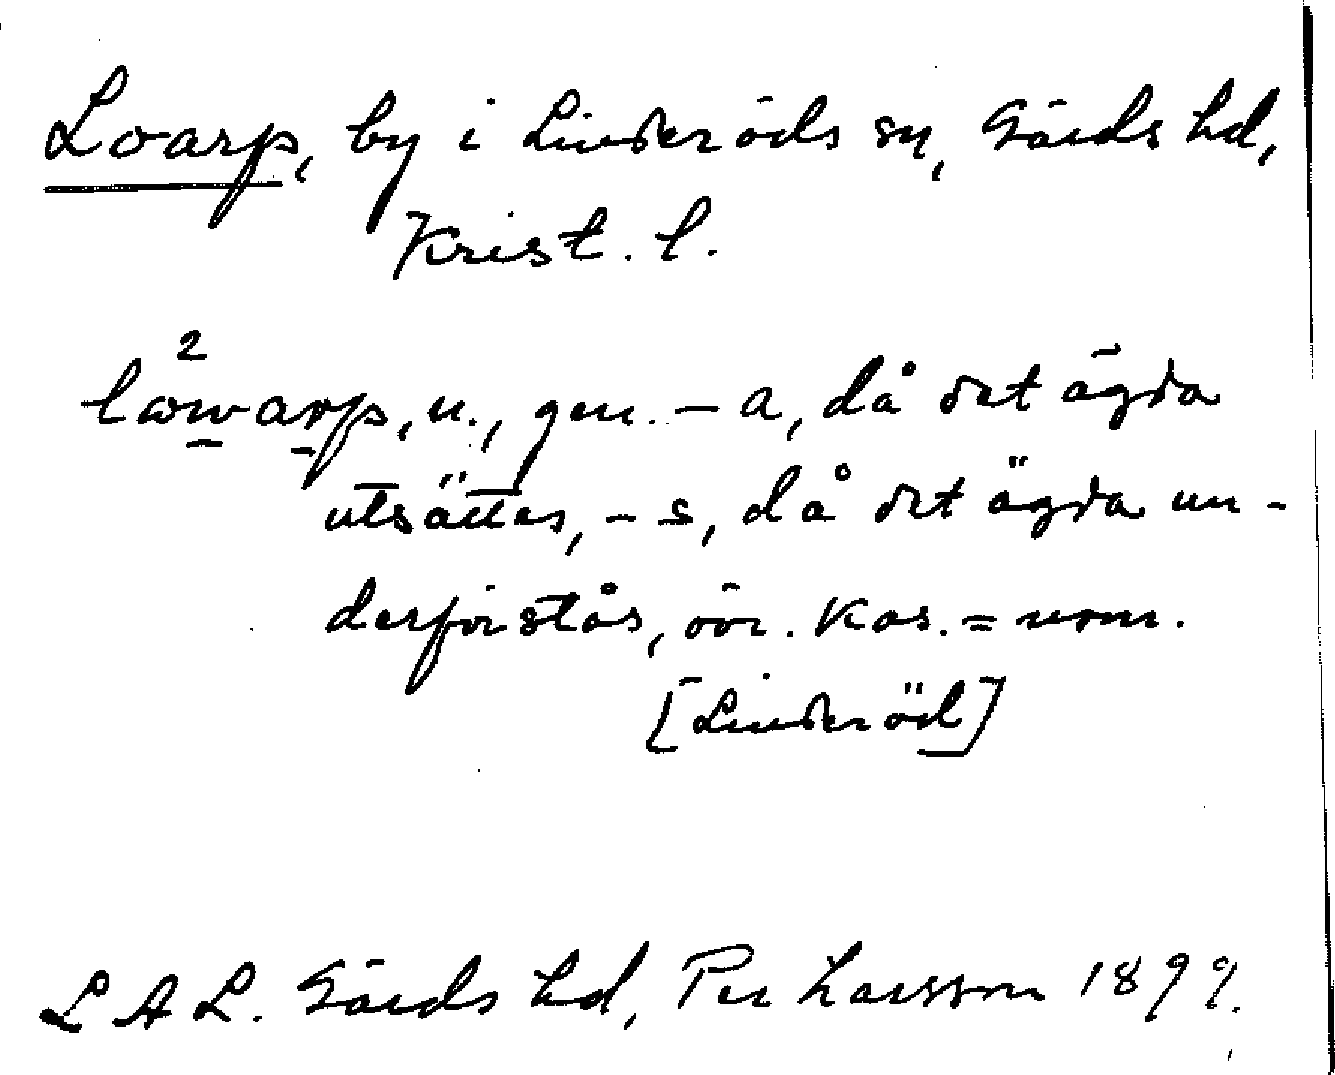 Loarp, by i Linderöds sn, Gärds hd,
Krist. l.
2
lowarp, n., gen. – a, då det ägda
utsättes, – s, då det ägda un-
derförstås, övr. kas. = nom.
[Linderöd]
L A L. Gärds hd, Per Larsson 1899.